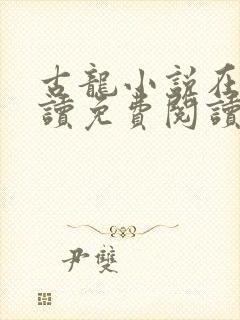 古龍小說在
讀免費閱讀
尹雙